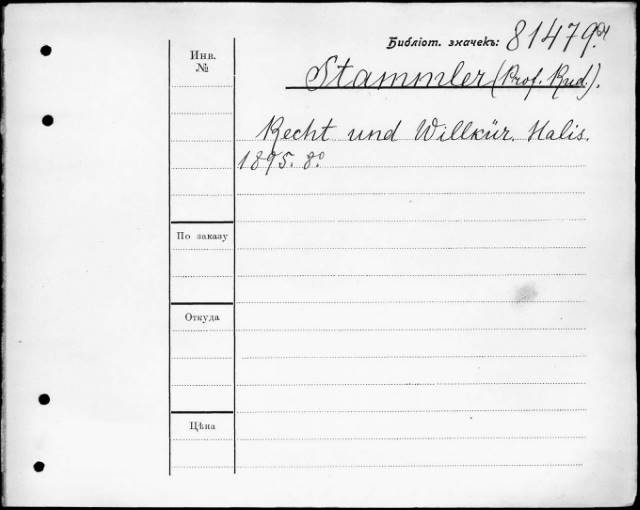 Библіот. значекъ: 81479
Инв. №
Stammler (Prof. Rud.).
Recht und Willkür. Halis.
1895. 8º
По заказу
Откуда
Цѣна